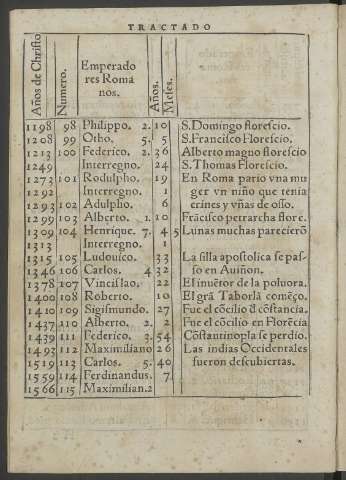 TRACTADO
Años de Christo
Numero.
Emperado
res Roma
nos.
Años.
Meses.
1198 98 Philippo. 2. 10 S. Domingo florescio.
1208 99 Otho. 5. 5 S. Francisco Florescio.
1213 100 Federico. 2. 26 Alberto magno florescio
1249 Interregno. 24 S. Thomas Florescio.
1273 101 Rodulpho. 19 En Roma pario vna mu
1292 Interregno. 1 ger vn niño que tenia
1293 102 Adulpho. 6 crines y vñas de osso.
1299 103 Alberto. 1. 10 Frãcisco petrarcha flore.
1309 104 Henrique. 7. 4 5 Lunas muchas parecierõ
1313 Interregno. 1
1315 105 Ludouico. 33 La silla apostolica se pas-
1346 106 Carlos. 4 32 so en Auiñon.
1378 107 Vincislao. 22 El inuẽtor de la poluora.
1400 108 Roberto. 10 El grã Taborlã comẽço.
1410 109 Sigismundo. 27 Fue el cõcilio d̃ cõstancia.
1437 110 Alberto. 2. 2 Fue el cõcilio en Florẽcia
1439 111 Federico. 3. 54 Cõstantinopla se perdio.
1493 112 Maximiliano 26 Las indias Occidentales
1519 113 Carlos. 5. 40 fueron descubiertas.
1559 114 Ferdinandus. 7
1566 115 Maximilian. 2